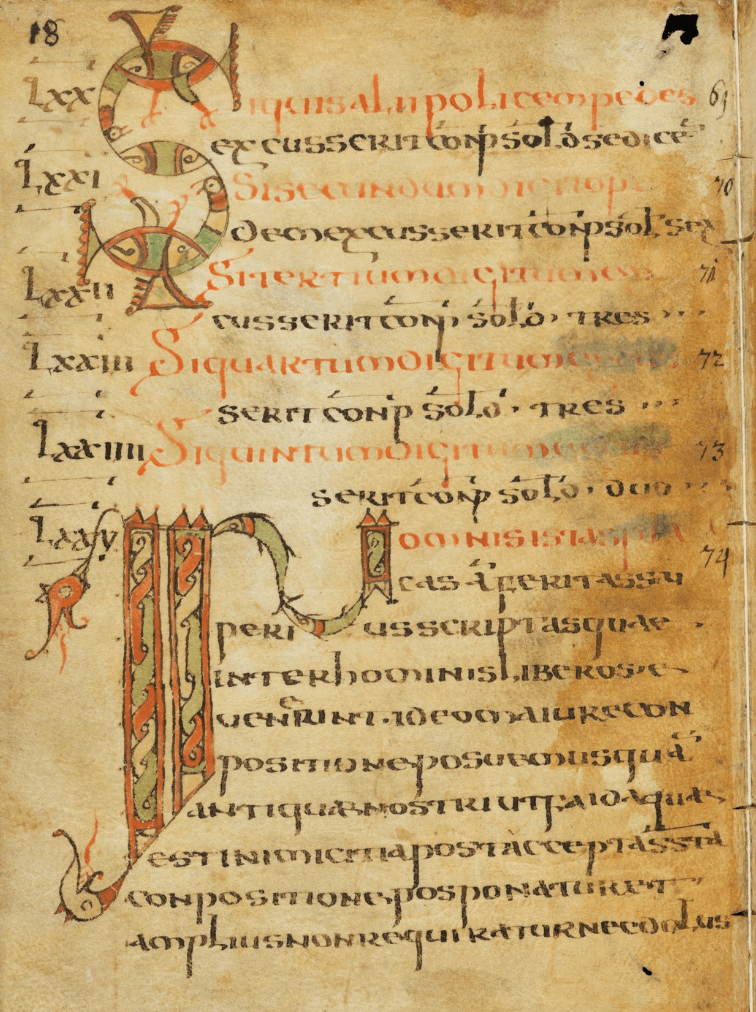 18
LXX Siquis alii policem pedes 69
excusserit conp solð sedicē
LXXI Si secundum digitum 70
dem excusserit conp sol sex
LXXII Si tertium digitum ex 71
cusserit conp solð tres
LXXIII Si quartum digitum 72
serit conp solð tres
LXXIIII Si quintum digitum 73
serit conp solð duo
LXXV In omnis istas pla 74
cas āferitassu
peri us scriptas quae
inter hominis liberos e
venerint ideo maiure con
positione posuemus quā
antiquae nostri ut faida quae
est inimicitia post acceptā ssta
conpositione posponatur et
amplius non requiratur nec dolus